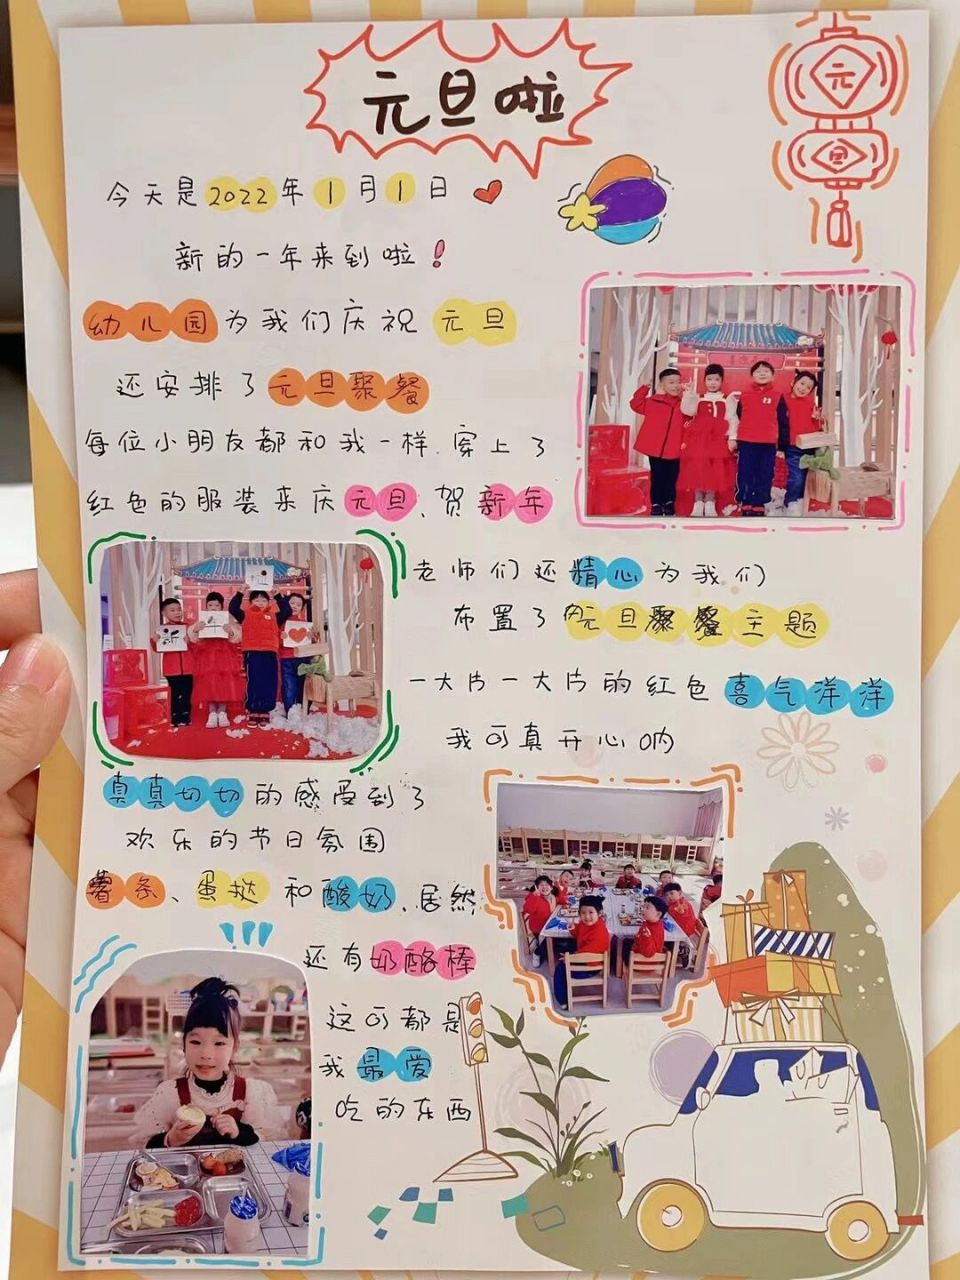 元旦啦
元
旦
今天是2022年1月1日
新的一年来到啦!
幼儿园为我们庆祝元旦
还安排了元旦聚餐
每位小朋友都和我一样,穿上了
红色的服装来庆元旦、贺新年
老师们还精心为我们
布置了元旦聚餐主题
一大片一大片的红色喜气洋洋
我可真开心呐
真真切切的感受到了
欢乐的节日氛围
薯条、蛋挞和酸奶、居然
还有奶酪棒
这可都是
我最爱
吃的东西